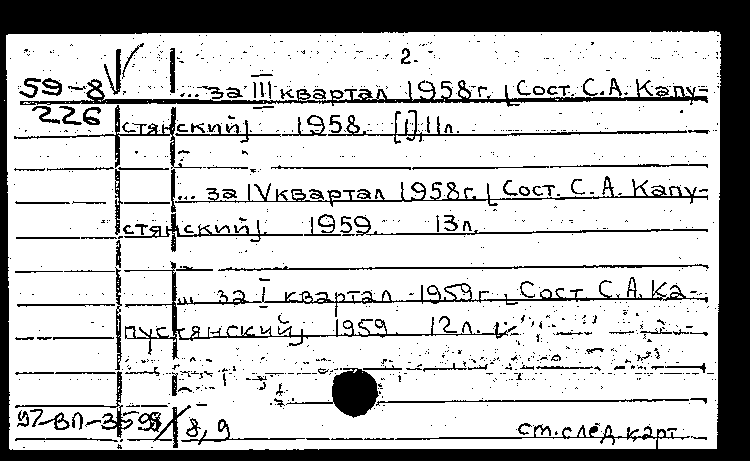 2.
59-8 ... за III квартал 1958г. [Сост. С.А. Капу-
226
стянский]. 1958. [1], 11л.
... за IV квартал 1958г. [Сост. С.А. Капу-
стянский]. 1959. 13л.
... за I квартал 1959г. [Сост. С.А. Ка-
пустянский] 1959. 12л.
8,9 ст.след.карт.